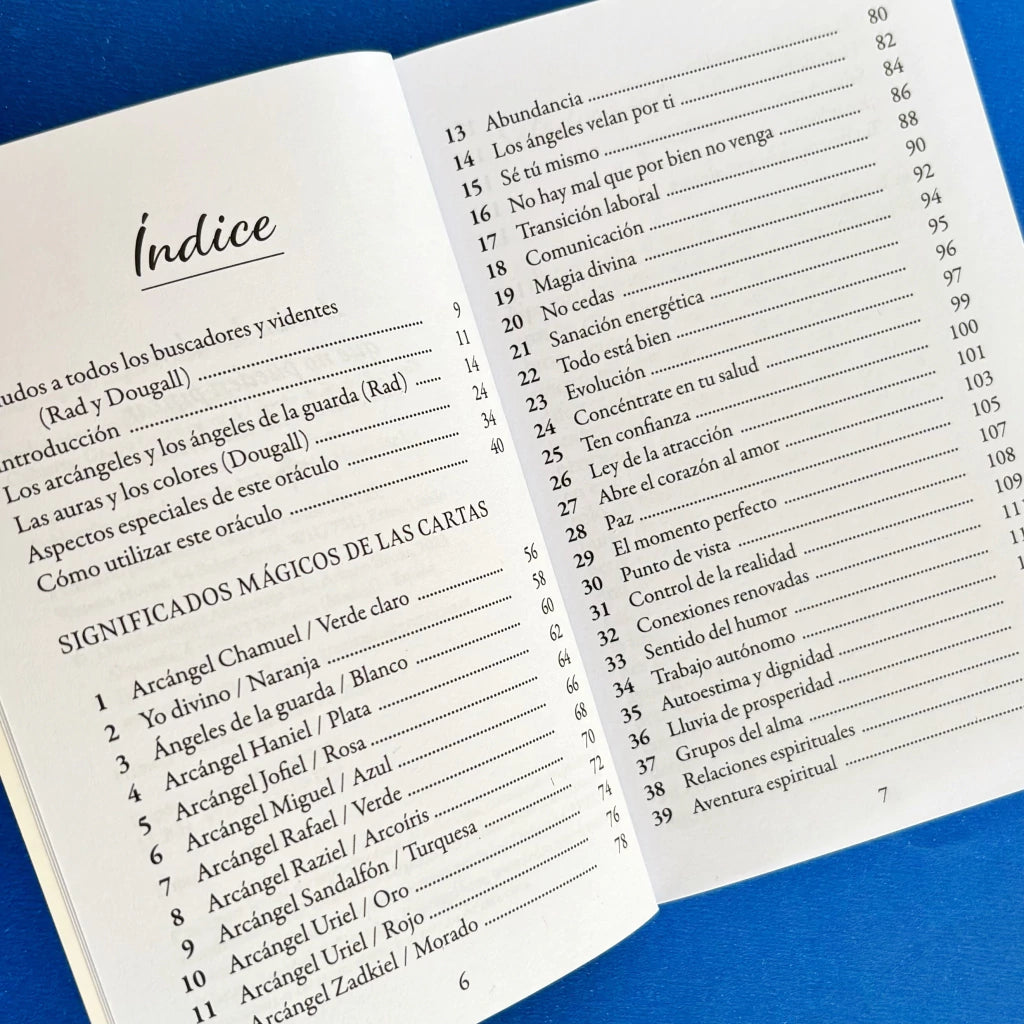 Índice
a todos los buscadores y videntes
(Rad y Dougall) 9
Introducción 11
Los arcángeles y los ángeles de la guarda (Rad) 14
Las auras y los colores (Dougall) 24
Aspectos especiales de este oráculo 34
Cómo utilizar este oráculo 40
SIGNIFICADOS MÁGICOS DE LAS CARTAS
1 Arcángel Chamuel / Verde claro 56
2 Yo divino / Naranja 58
3 Ángeles de la guarda / Blanco 60
4 Arcángel Haniel / Plata 62
5 Arcángel Jofiel / Rosa 64
6 Arcángel Miguel / Azul 66
7 Arcángel Rafael / Verde 68
8 Arcángel Raziel / Arcoíris 70
9 Arcángel Sandalfón / Turquesa 72
10 Arcángel Uriel / Oro 74
11 Arcángel Uriel / Rojo 76
Arcángel Zadkiel / Morado 78
6
13 Abundancia 80
14 Los ángeles velan por ti 82
15 Sé tú mismo 84
16 No hay mal que por bien no venga 86
17 Transición laboral 88
18 Comunicación 90
19 Magia divina 92
20 No cedas 94
21 Sanación energética 95
22 Todo está bien 96
23 Evolución 97
24 Concéntrate en tu salud 99
25 Ten confianza 100
26 Ley de la atracción 101
27 Abre el corazón al amor 103
28 Paz 105
29 El momento perfecto 107
30 Punto de vista 108
31 Control de la realidad 109
32 Conexiones renovadas
33 Sentido del humor
34 Trabajo autónomo
35 Autoestima y dignidad
36 Lluvia de prosperidad
37 Grupos del alma
38 Relaciones espirituales
39 Aventura espiritual
7